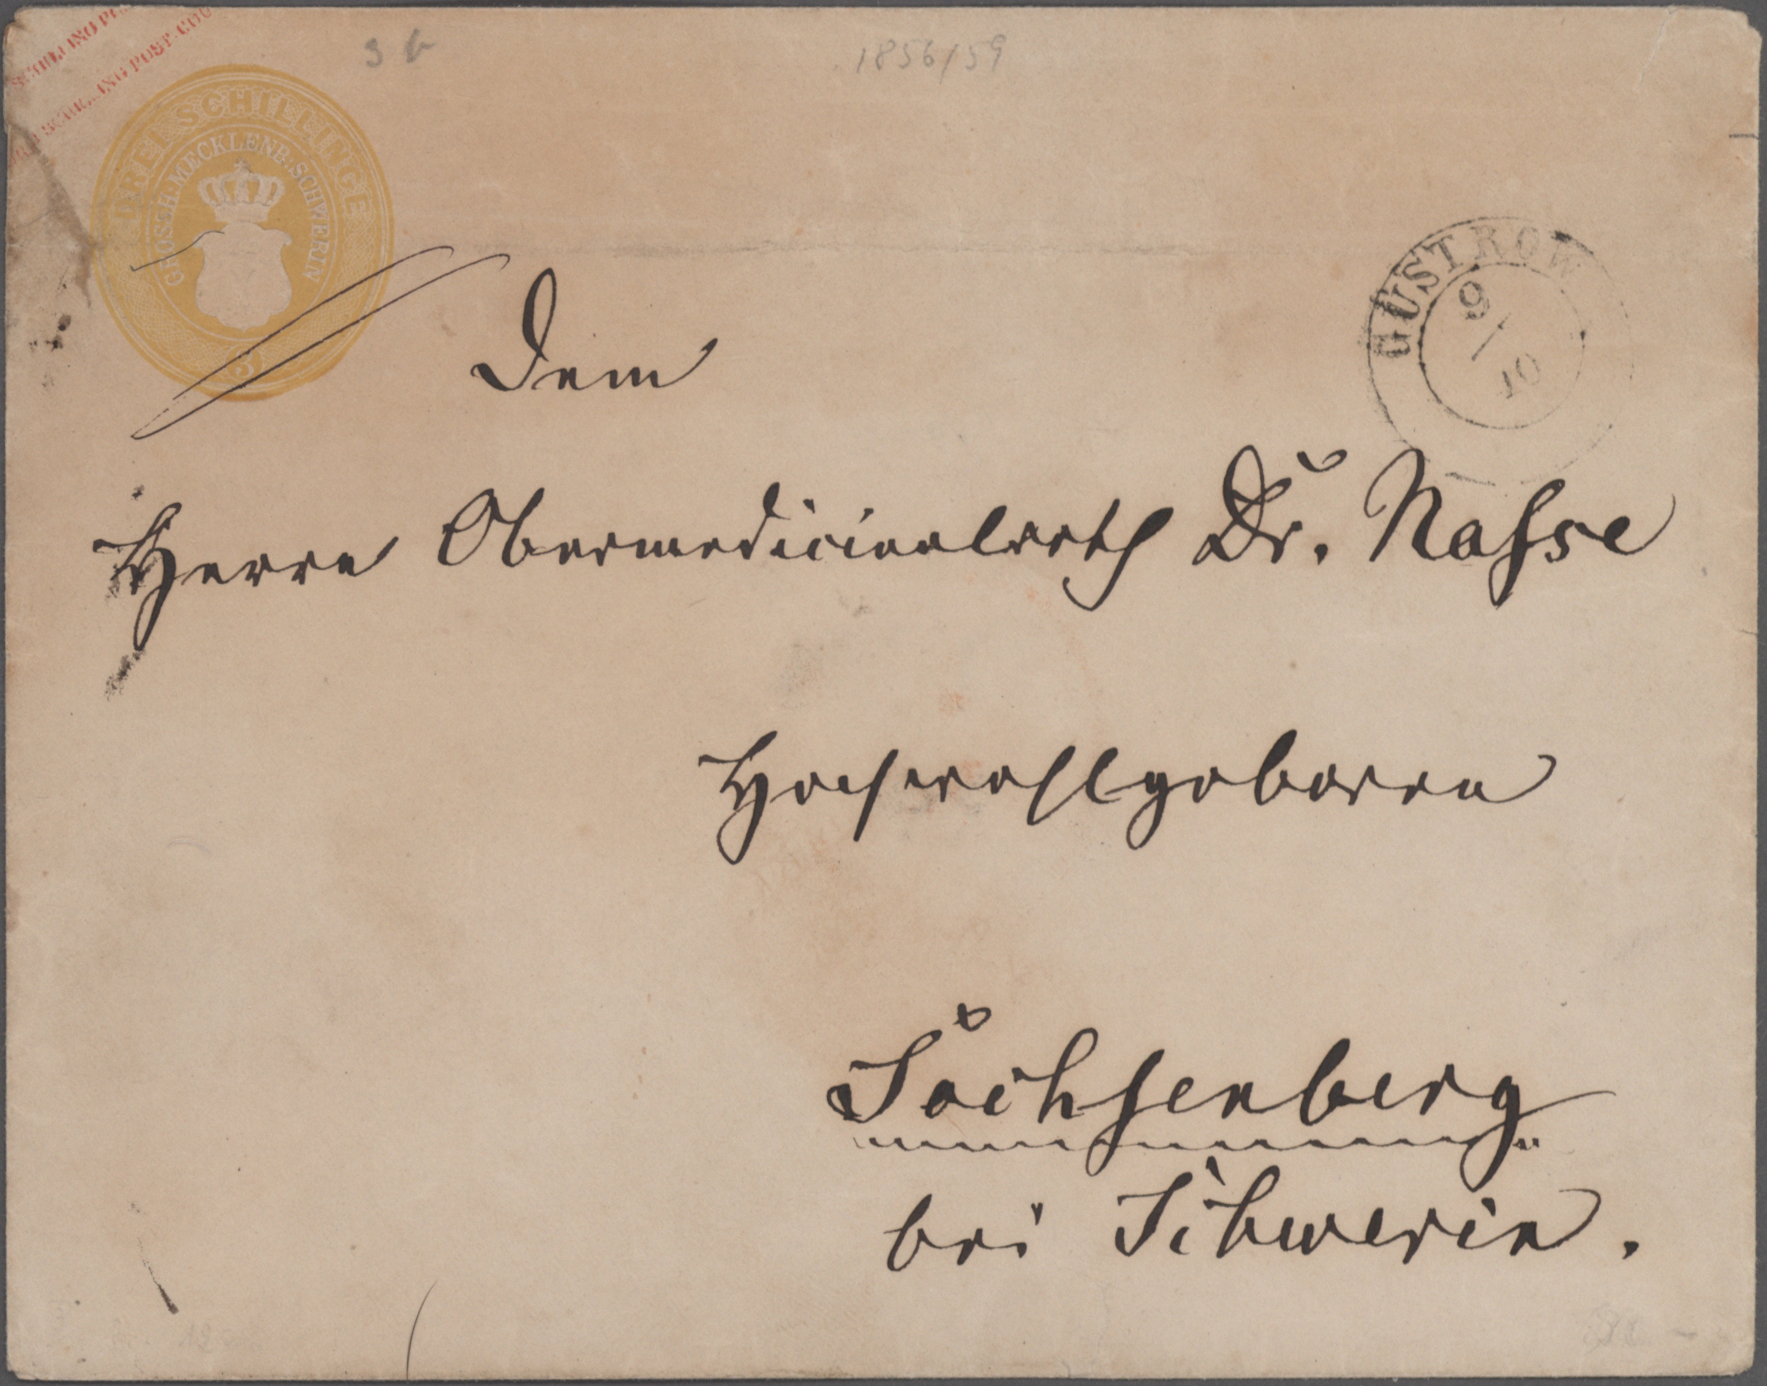 SCHILLING PO
SCHILLING POST COU
3 b
1856/59
DREI SCHILLINGE
GROSSH. MECKLENB. SCHWERIN
3
GÜSTROW
9/10
Dem
Herrn Obermedicinalrath Dr. Nasse
Hochwohlgeboren
Sachsenberg
bei Schwerin.